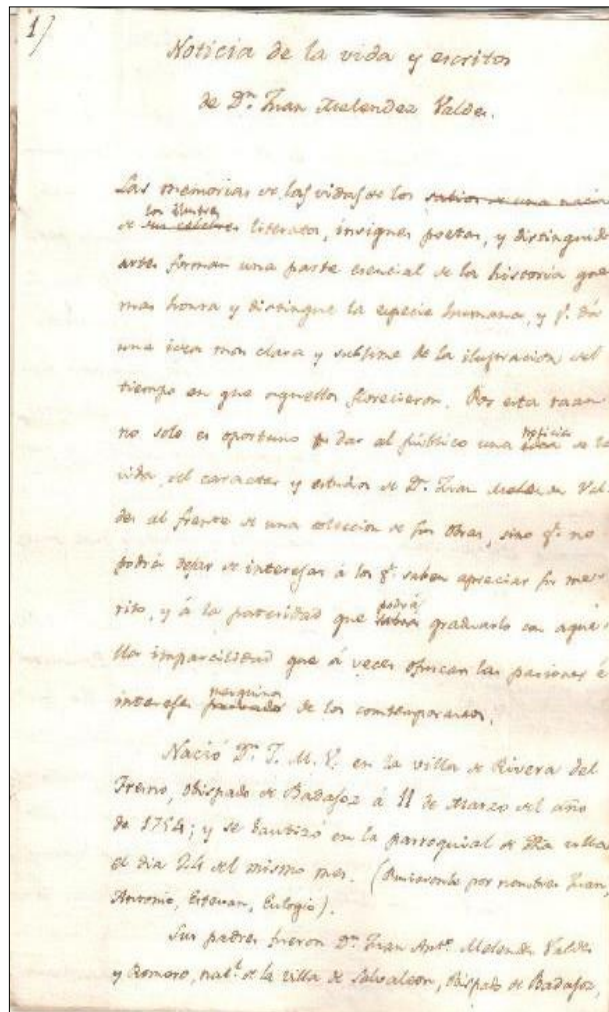 1)
Noticia de la vida y escritos
de Dn. Juan Melendez Valdes.
Las memorias de las vidas de los sabios de una nacion
los ilustres
de sus celebres literatos, insignes poetas, y distinguido
artes forman una parte esencial de la historia que
mas honra y distingue la especie humana, y qe. dá
una idea mas clara y sublime de la ilustracion del
tiempo en que aquellos florecieron. Por esta razon
noticia
no solo es oportuno dar al público una idea de la
vida, del caracter y estudios de Dn. Juan Melendez Val
des al frente de una coleccion de sus Obras, sino qe. no
podrá dejar de interesar á los qe. saben apreciar su me
podrá
rito, y á la posteridad que sabrá graduarlo con aque
lla imparcilidad que á veces ofuscan las pasiones é
mezquinos
intereses privados de los comtemporaneos.
Nació Dn. J. M. V. en la villa de Rivera del
Fresno, obispado de Badajoz á 11 de Marzo del año
de 1754; y se bautizó en la parroquial de dha villa
el dia 24 del mismo mes. (Pusieronle por nombres Juan,
Antonio, Estevan, Eulogio).
Sus padres fueron Dn. Juan Anto. Melendez Valdes
y Romero, natl. de la villa de Salvaleon, Obispado de Badajoz,